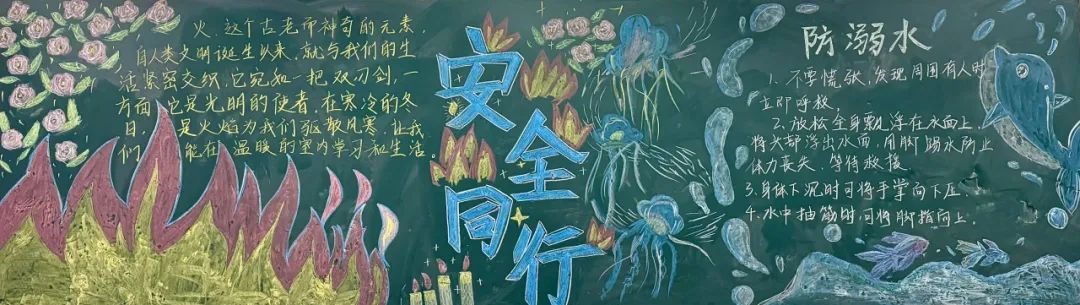 火,这个古老而神奇的元素,
自人类文明诞生以来,就与我们的生
活紧密交织,它宛如一把双刃剑,一
方面,它是光明的使者,在寒冷的冬
日,是火焰为我们驱散风寒,让我
们能在温暖的室内学习和生活。
安全同行
防溺水
1. 不要慌张,发现周围有人时
立即呼救。
2. 放松全身飘浮在水面上,
将头部浮出水面,用脚踢水防止
体力丧失,等待救援
3. 身体下沉时可将手掌向下压。
4. 水中抽筋时可将脚指向上。